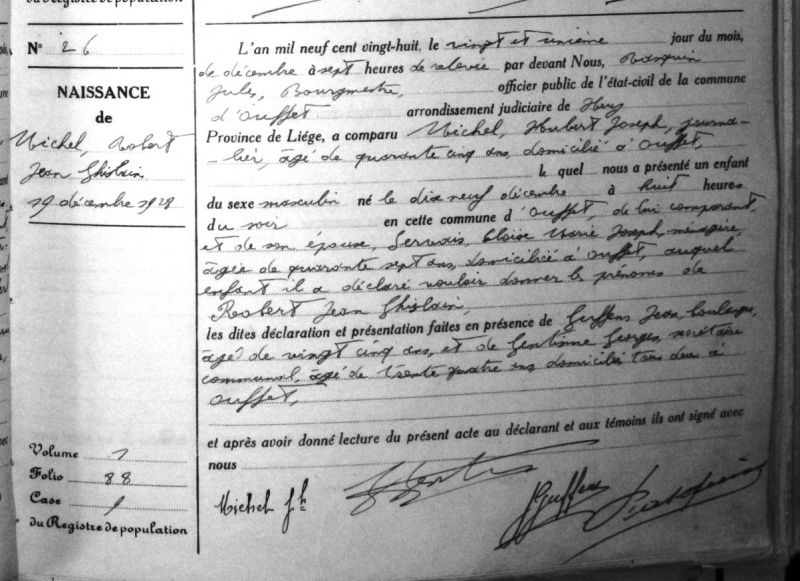 du Registre de population
N° 26
NAISSANCE
de
Michel, Robert
Jean Ghislain
19 décembre 1928
Volume 1
Folio 88
Case 1
du Registre de population
L'an mil neuf cent vingt-huit, le vingt et unième jour du mois,
de décembre à sept heures de relevée par devant Nous,
Jules, Bourgmestre, officier public de l'état-civil de la commune
d'Ouffet. arrondissement judiciaire de Huy
Province de Liége, a comparu Michel, Hubert Joseph, journa-
lier, âgé de quarante cinq ans, domicilié à Ouffet,
le quel nous a présenté un enfant
du sexe masculin né le dix neuf décembre à huit heures
du soir en cette commune d'Ouffet, de lui comparant,
et de son épouse, Servais, Eloïse Marie Joseph, ménagère,
âgée de quarante sept ans, domiciliée à Ouffet, auquel
enfant il a déclaré vouloir donner les prénoms de
Robert Jean Ghislain,
les dites déclaration et présentation faites en présence de Guffens Jean, boulanger,
âgé de vingt cinq ans, et de Georges, secrétaire
communal, âgé de trente quatre ans domiciliés tous deux à
Ouffet,
et après avoir donné lecture du présent acte au déclarant et aux témoins ils ont signé avec
nous
Michel J h
JGuffens